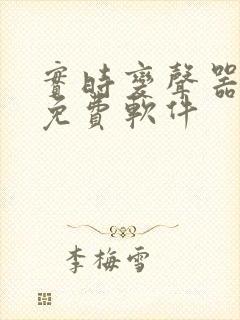 實時變聲器
免費軟件
李梅雪